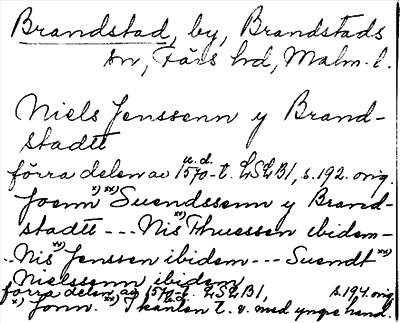 Brandstad, by, Brandstads
sn, Färs hd, Malm. l.
Niels Jenssenn y Brand-
stadtt
u. d.
förra delen av 1570-t. LSLB1, s. 192. orig.
Joenn x) xx) Suendssenn y Brand-
stadtt --- Nis xx) Thuessen ibidem-
..Nis xx) Jenssen ibidem --- Suendt xx)
Nielssenn ibidem
förra delen av 1570-t. LSLB1, s. 194 orig.
x) Jonn. xx) I kanten t. v. med yngre hand.